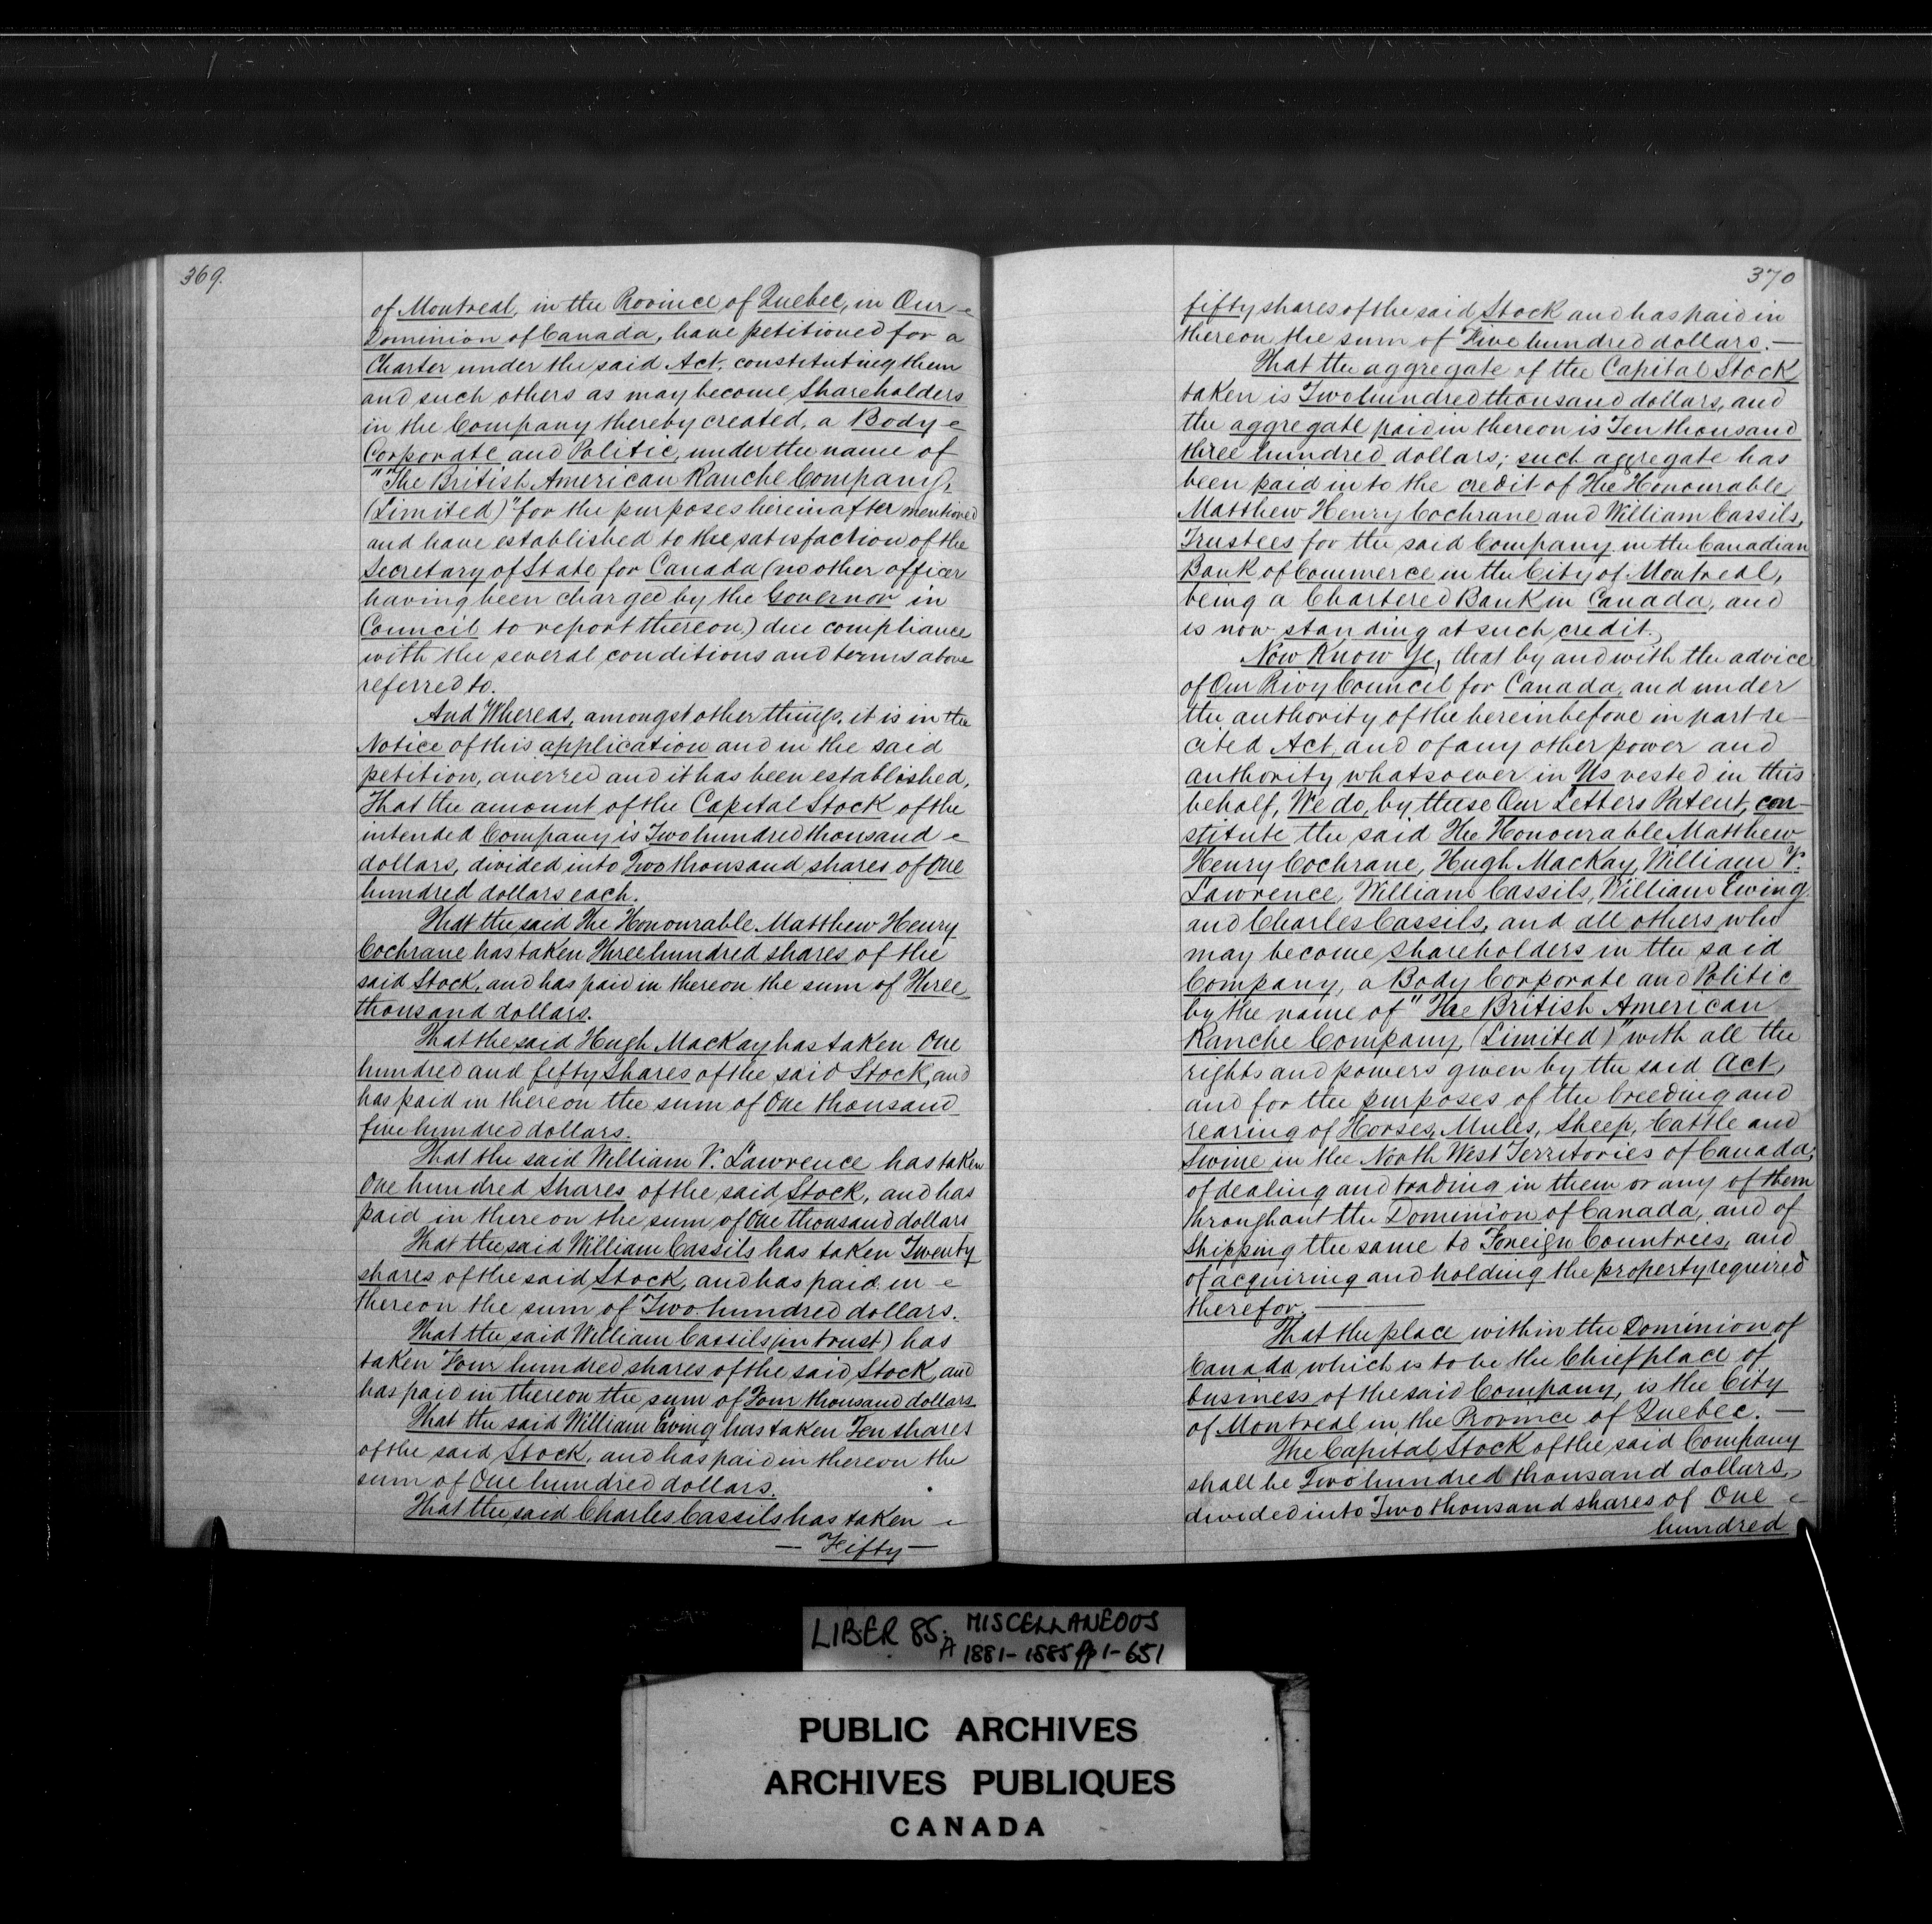 369.
of Montreal, in the Province of Quebec, in Our
Dominion of Canada, have petitioned for a
Charter under the said Act, constituting them
and such others as may become Shareholders
in the Company thereby created, a Body
Corporate and Politic, under the name of
"The British American Ranche Company,
(Limited)" for the purposes hereinafter mentioned
and have established to the satisfaction of the
Secretary of State for Canada (no other officer
having been charged by the Governor in
Council to report thereon) due compliance
with the several conditions and terms above
referred to.
And Whereas, amongst other things, it is in the
Notice of this application and in the said
petition, averred and it has been established,
That the amount of the Capital Stock of the
intended Company is Two hundred thousand
dollars, divided into Two thousand shares of One
hundred dollars each.
That the said The Honourable Matthew Henry
Cochrane has taken Three hundred shares of the
said Stock, and has paid in thereon the sum of Three
thousand dollars.
That the said Hugh MacKay has taken One
hundred and fifty Shares of the said Stock, and
has paid in thereon the sum of One thousand
five hundred dollars.
That the said William V. Lawrence has taken
One hundred Shares of the said Stock, and has
paid in thereon the sum of One thousand dollars
That the said William Cassils has taken Twenty
shares of the said Stock, and has paid in
thereon the sum of Two hundred dollars.
That the said William Cassils (in trust) has
taken Four hundred shares of the said Stock, and
has paid in thereon the sum of Four thousand dollars
That the said William Ewing has taken Ten shares
of the said Stock, and has paid in thereon the
sum of One hundred dollars.
That the said Charles Cassils has taken
— Fifty —
370
fifty shares of the said Stock and has paid in
thereon the sum of Five hundred dollars. —
That the aggregate of the Capital Stock
taken is Two hundred thousand dollars, and
the aggregate paid in thereon is Ten thousand
three hundred dollars; such aggregate has
been paid in to the credit of The Honourable
Matthew Henry Cochrane and William Cassils,
Trustees for the said Company in the Canadian
Bank of Commerce in the City of Montreal,
being a Chartered Bank in Canada, and
is now standing at such credit.
Now Know Ye, that by and with the advice
of Our Privy Council for Canada, and under
the authority of the hereinbefore in part re-
cited Act, and of any other power and
authority whatsoever in Us vested in this
behalf, We do, by these Our Letters Patent, con-
stitute the said The Honourable Matthew
Henry Cochrane, Hugh MacKay, William V.
Lawrence, William Cassils, William Ewing
and Charles Cassils, and all others who
may become shareholders in the said
Company, a Body Corporate and Politic
by the name of "The British American
Ranche Company, (Limited)" with all the
rights and powers given by the said Act,
and for the purposes of the breeding and
rearing of Horses, Mules, Sheep, Cattle and
Swine in the North West Territories of Canada;
of dealing and trading in them or any of them
throughout the Dominion of Canada, and of
shipping the same to Foreign Countries, and
of acquiring and holding the property required
therefor. —
That the place within the Dominion of
Canada which is to be the Chief place of
business of the said Company, is the City
of Montreal in the Province of Quebec. —
The Capital Stock of the said Company
shall be Two hundred thousand dollars,
divided into Two thousand shares of One
hundred
LIBER 85. MISCELLANEOUS
A 1881-1885 pp 1-651
PUBLIC ARCHIVES
ARCHIVES PUBLIQUES
CANADA